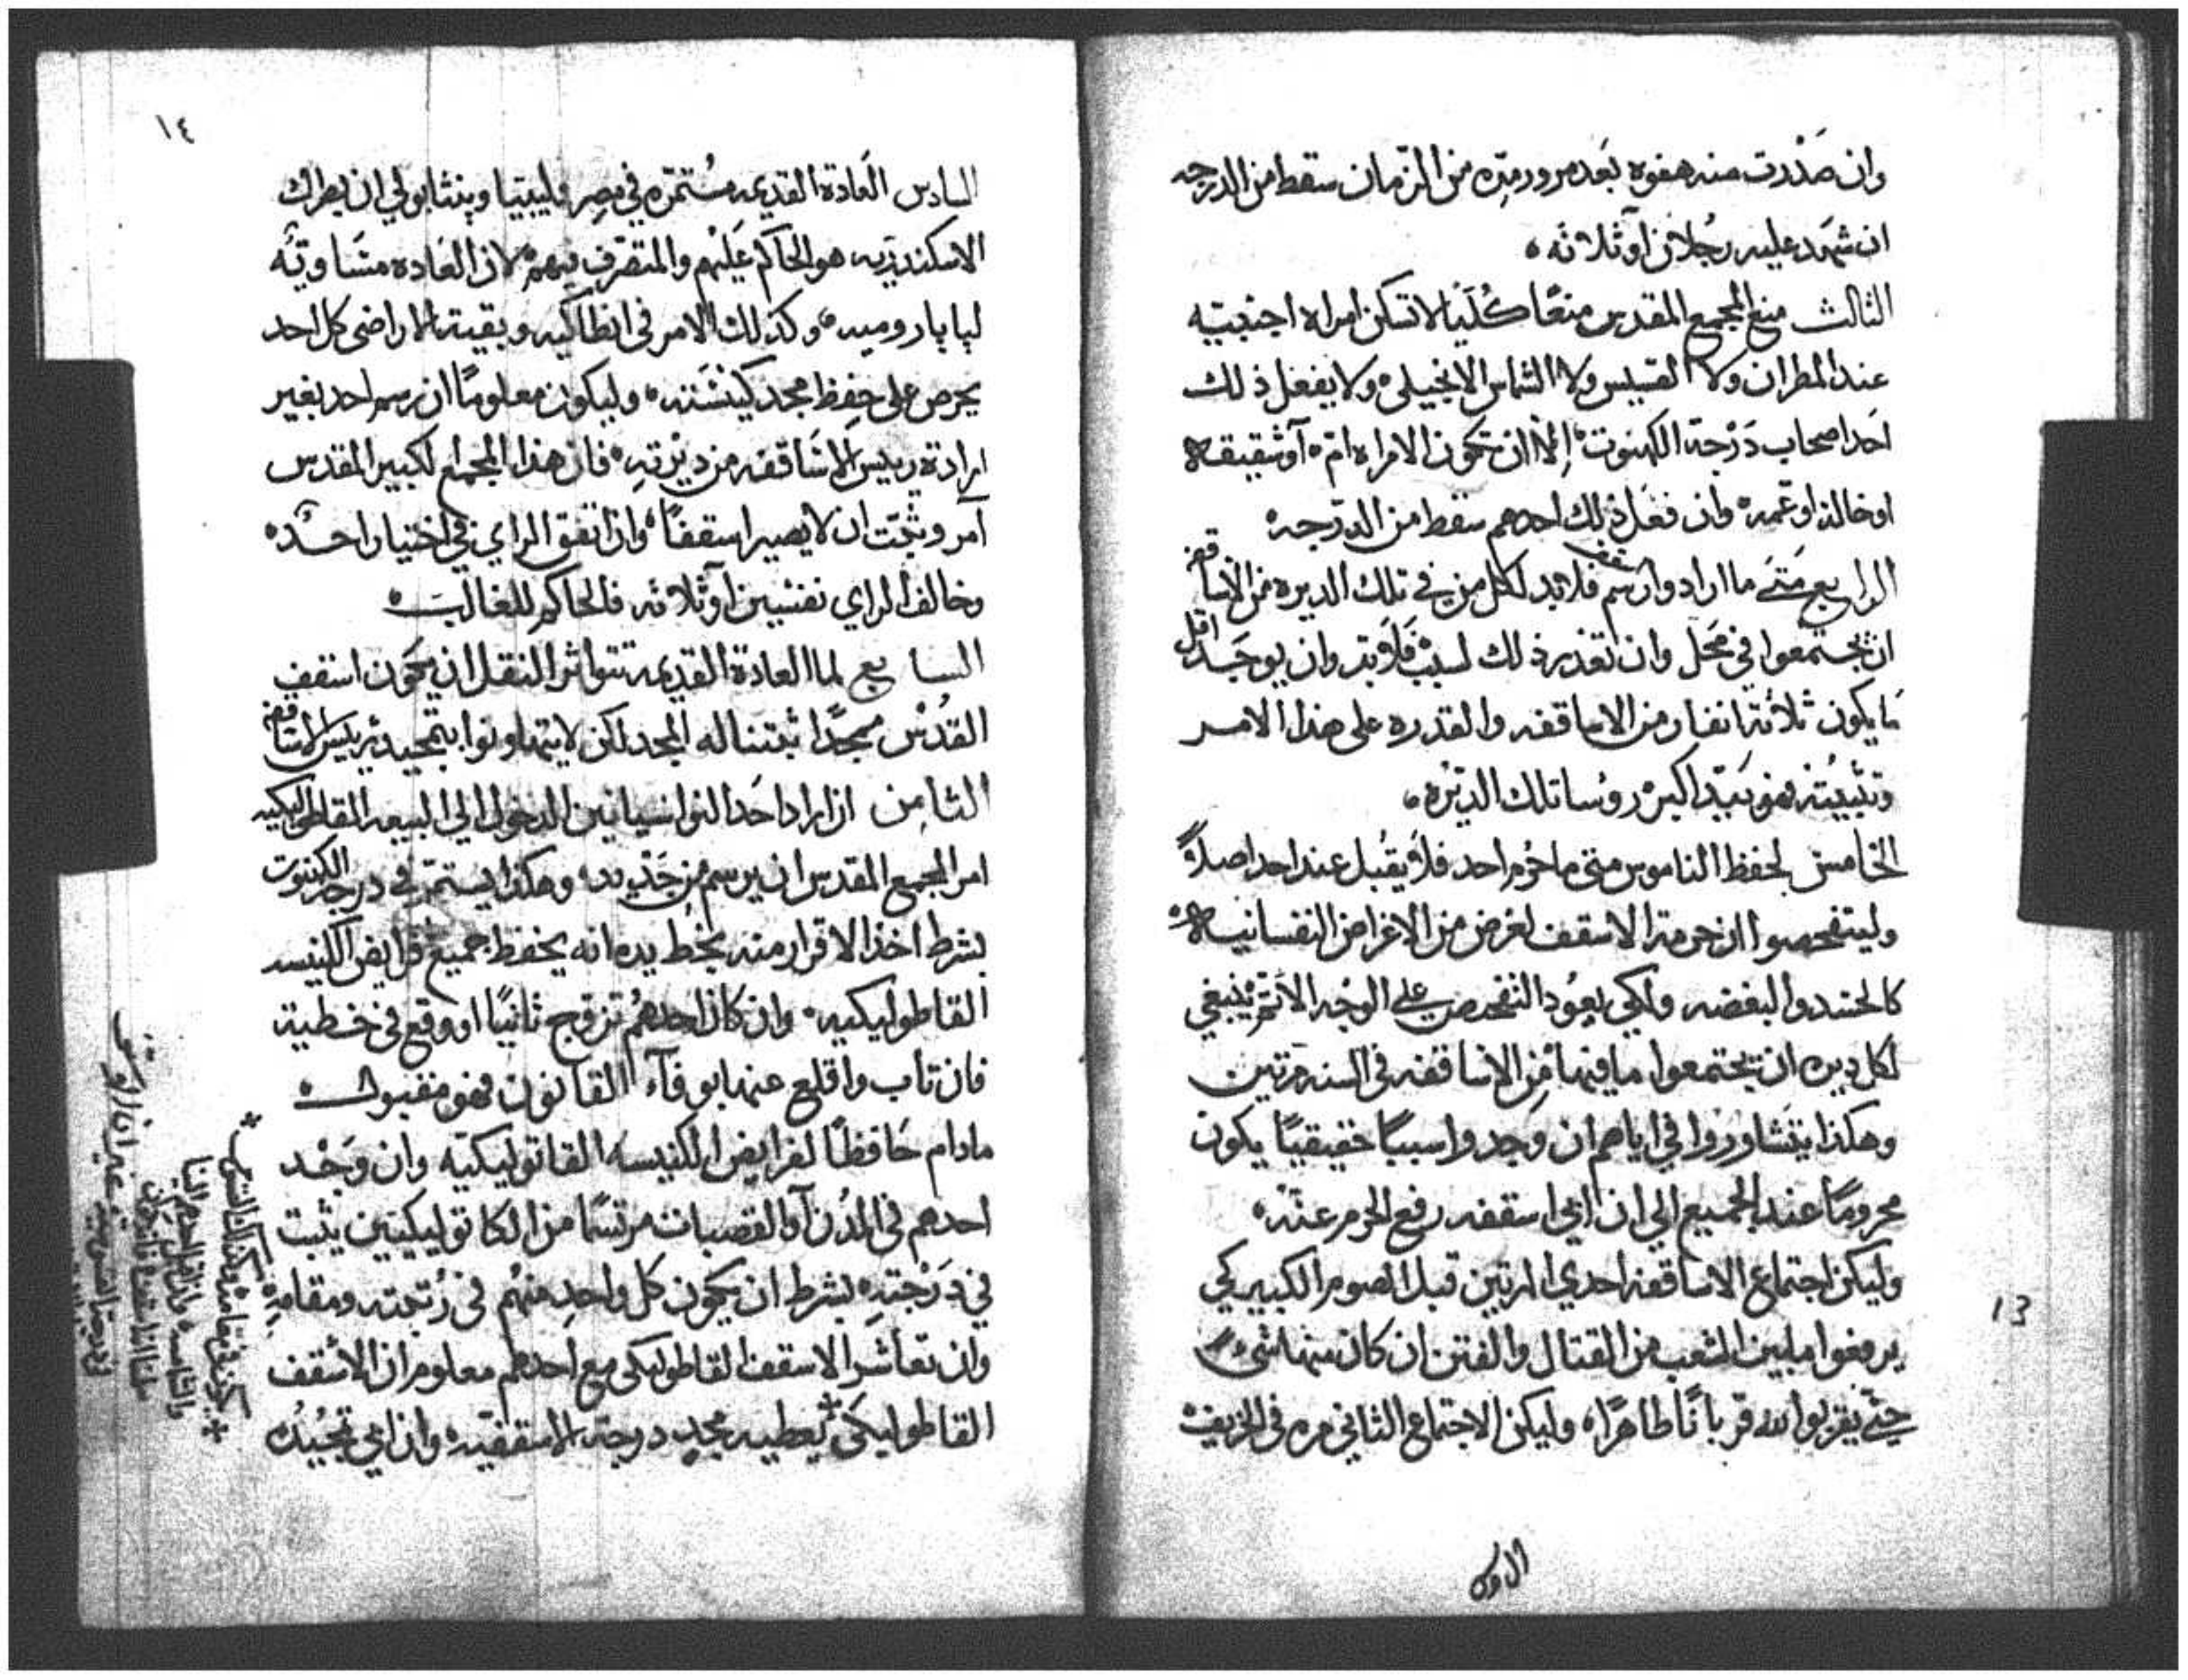 وان صدرت منه هفوه بعد مرور مدّه من الزمان سقط من الدرجه
ان شهد عليه رجلان او ثلاثه ،
الثالث منع المجمع المقدس منعًا كليًا لا تسكن امراه اجنبيّه
عند المطران ولا القسيس ولا الشماس الانجيلي ولا يفعل ذلك
احد اصحاب درجة الكهنوت الا ان تكون الامراه امّه او شقيقه
او خاله او عمه وان فعل ذلك احدهم سقط من الدرجه
الرابع متى ما ارادوا رسم اسقف فلا بد لكل من في تلك الديره من الاساقفه
ان يجتمعوا في محل وان تعذر ذلك لسبب فلا بد وان يوجد اقل
ما يكون ثلاثة انفار من الاساقفه والقدره على هذا الامر
وتثبيته هو بيد اكبر روسا تلك الديره ،
الخامس لحفظ الناموس متى ما حرم احد فلا يقبل عند احد اصلاً
وليتفحصوا ان حرمه الاسقف لغرض من الاغراض النفسانيه
كالحسد والبغضه ولكي يعود التفحص على الوجه الاتم ينبغي
لكل ديره ان يجتمعوا ما فيها من الاساقفه في السنه مرتين
وهكذا يتشاوروا في اياهم ان وجدوا سببًا حقيقيًا يكون
محرومًا عند الجميع الي ان اسقفه رفع الحرم عنه
وليكن اجتماع الاساقفه احدي المرتين قبل الصوم الكبير كي
يرفعوا ما بين الشعب من القتال والفتن ان كان منها شي
حتى يقربوا لله قربانًا طاهرًا ، وليكن الاجتماع الثاني مره في الخريف
13
١٤
السادس العادة القديمه مستمرّه في مصر وليبيا وبنتابولي ان بطرك
الاسكندريه هو الحاكم عليهم والمتصرف فيهم لان العاده متساويّه
لبابا روميه وكذلك الامر في انطاكيه وبقية الاراضي كل احد
يحرص على حفظ مجد كنيسته وليكون معلومًا ان رسم احد بغير
ارادة رييس الاساقفه من ديرته فان هذا المجمع الكبير المقدس
آمر وثبّت ان لا يصير اسقفًا واذا اتفق الراي في اختيار احد
وخالف الراي نفسين او ثلاثه فالحاكم للغالب
السابع لما العادة القديمه تتواتر النقل ان يكون اسقف
القدس ممجدًا ثبتنا له المجد لكن لا يتهاونوا بتمجيد رييس الاساقفه
الثامن اذا اراد احد النواسيانين الدخول الي البيعه القاطوليكيه
امر المجمع المقدس ان يرسم من جديد وهكذا يستمر في درجة الكهنوت
بشرط اخذ الاقرار منه بخط يده انه يحفظ جميع فرايض الكنيسه
القاطوليكيه وان كان احدهم تزوج ثانيًا او وقع في خطيه
فان تاب واقلع عنها بوفآء القانون فهو مقبول
مادام حافظًا لفرايض الكنيسه القاتوليكيه وان وجد
احدهم في المدن او القصبات مرتسمًا من الكاتوليكيين يثبت
في درجته بشرط ان يكون كل واحد منهم في رتبته ومقامه
وان تعاشر الاسقف القاطوليكي مع احدهم معلوم ان الاسقف
القاطوليكي يعطيه مجد درجة الاسقفيه وان